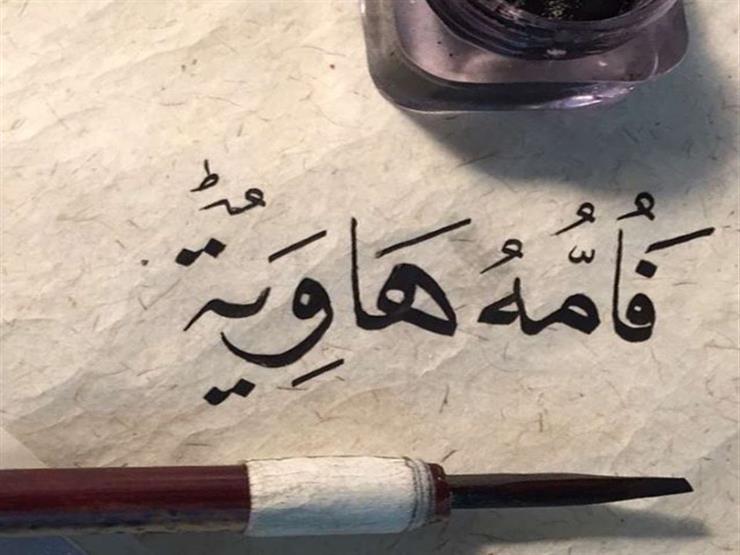 فَأُمُّهُ هَاوِيَةٌ ۖ